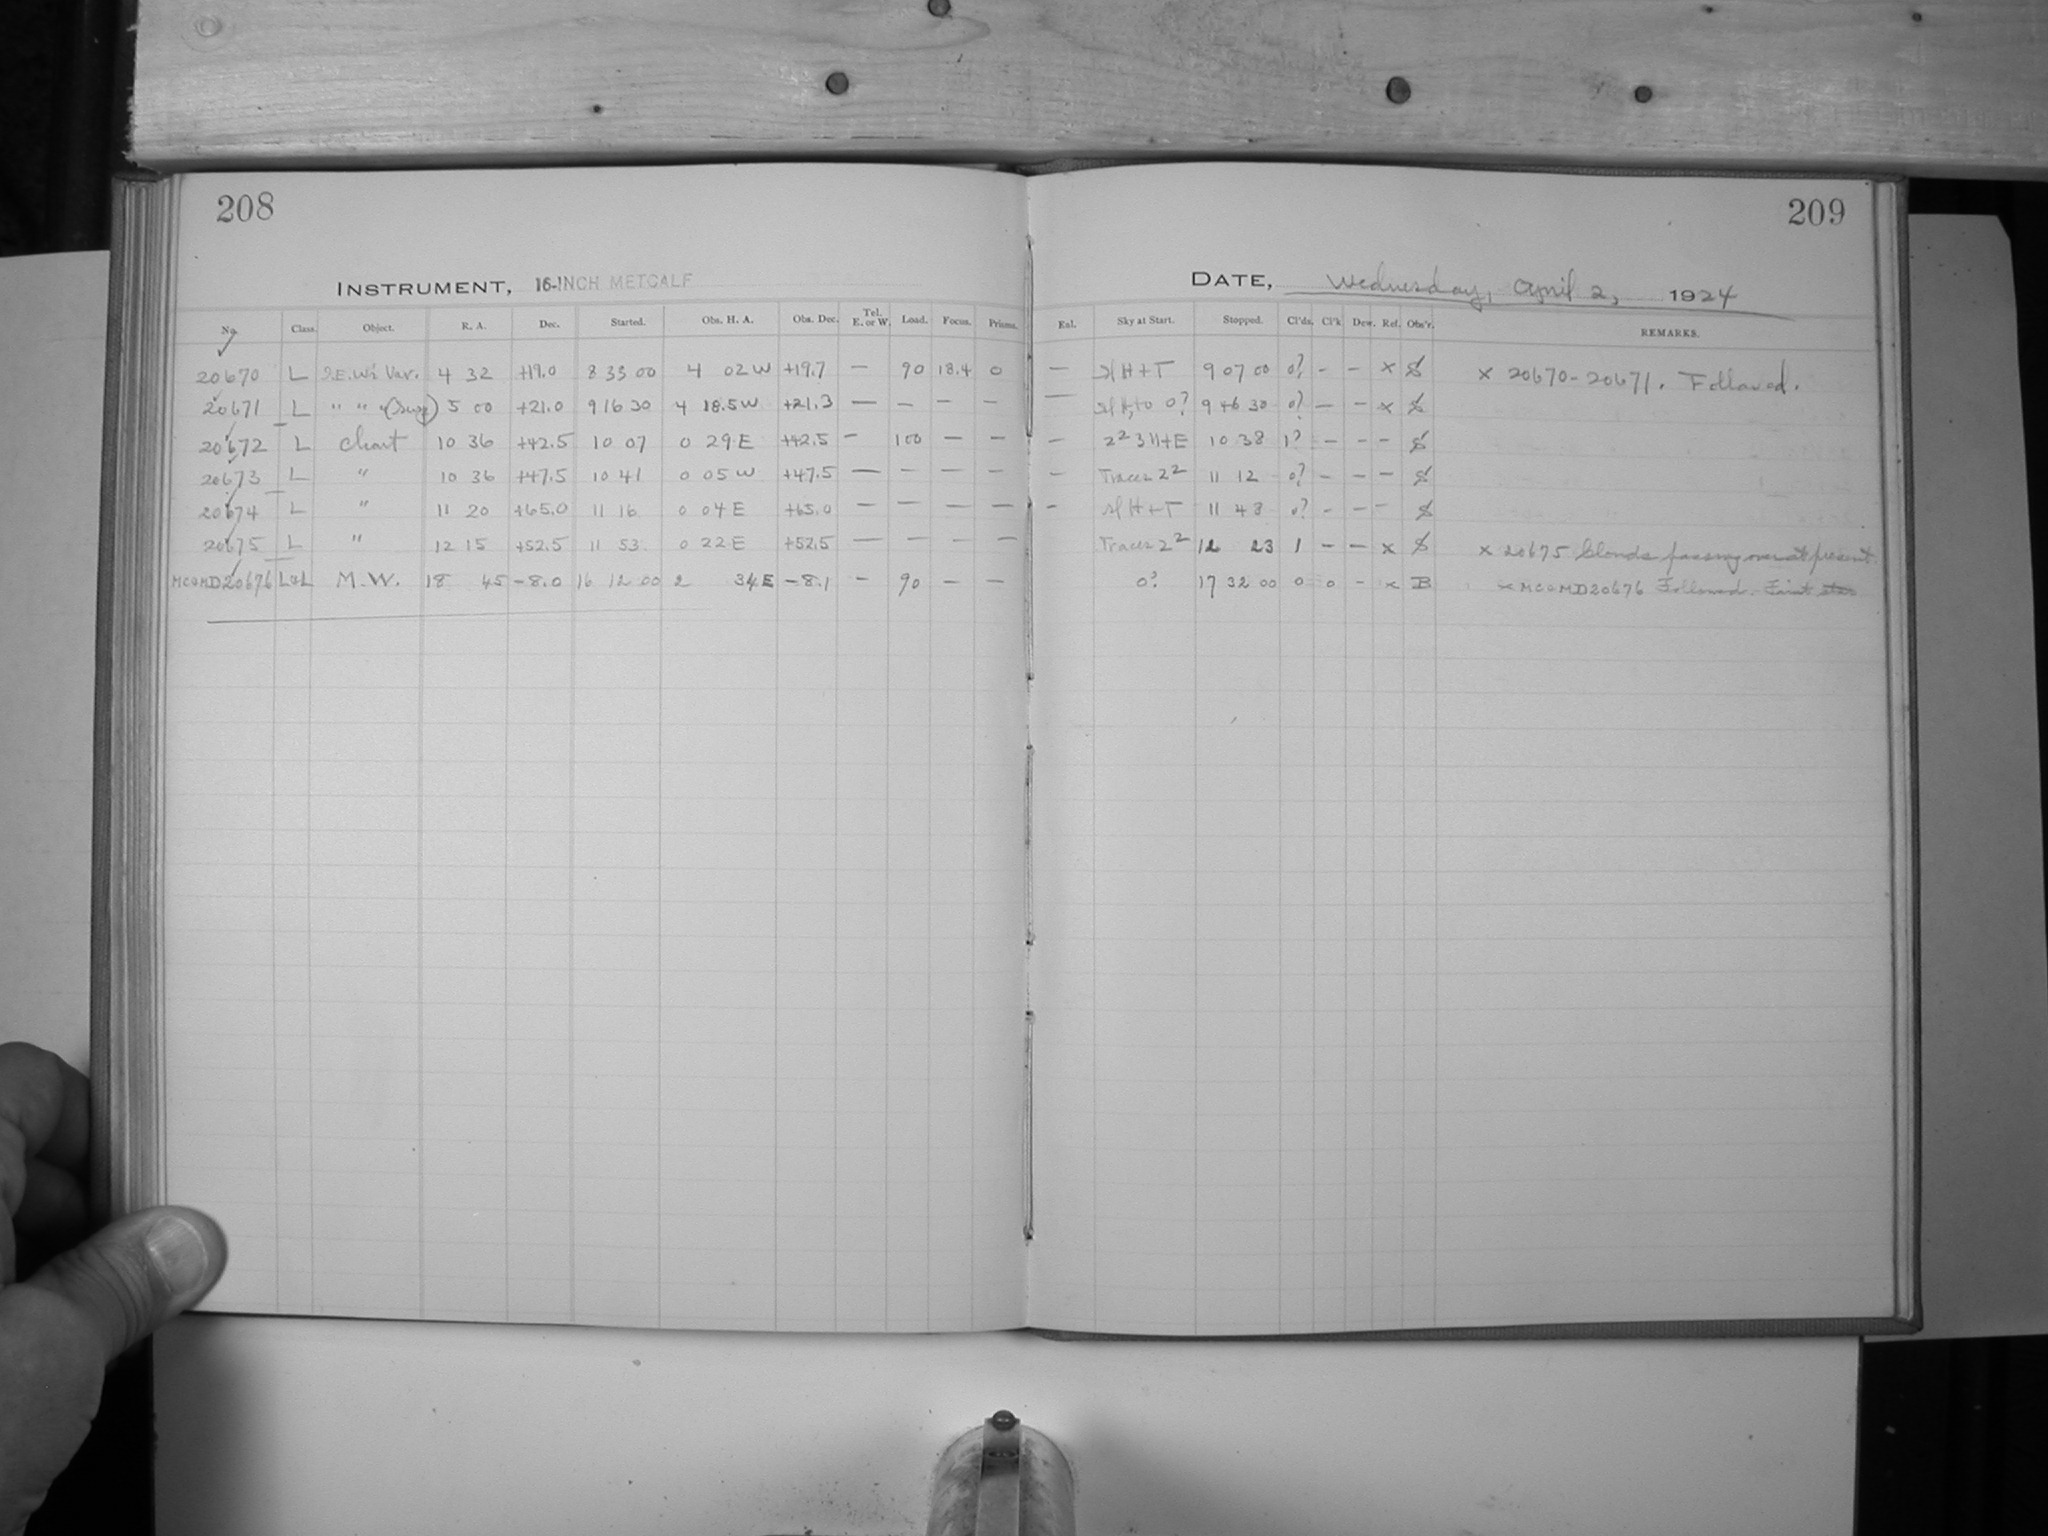 208
209
INSTRUMENT, 16-INCH METCALF
DATE, Wednesday, April 2, 1924
No. Class. Object. R. A. Dec. Started. Obs. H. A. Obs. Dec. Tel. E. or W. Load. Focus. Prisms. Ext. Sky at Start. Stopped. Cl'ds. Cl'k Dew. Ref. Obs'r. REMARKS.
20670 L Var. 4 32 +19.0 8 33 00 4 02 W +19.7 — 90 18.4 0 — sl H + T 9 07 00 0? - - x S x 20670-20671. Followed.
20671 L " " " (Susp) 5 00 +21.0 9 16 30 4 18.5 W +21.3 — — — — — 0? 9 46 30 0? — - x S
20672 L Chart 10 36 +42.5 10 07 0 29 E +42.5 — 100 — — — 2² 3 H+E 10 38 1? — - - S
20673 L " 10 36 +47.5 10 41 0 05 W +47.5 — — — — — Traces 2² 11 12 0? - — - S
20674 L " 11 20 +65.0 11 16 0 04 E +65.0 — — — — - sl H + T 11 48 0? - — - S
20675 L " 12 15 +52.5 11 53 0 22 E +52.5 — — — — Traces 2² 12 23 1 — — x S x 20675 Clouds passing over at present
MCOMD20676 L&L M.W. 18 45 -8.0 16 12 00 2 34 E -8.1 - 90 — — 0? 17 32 00 0 0 - x B x MCOMD20676 Followed. Faint star